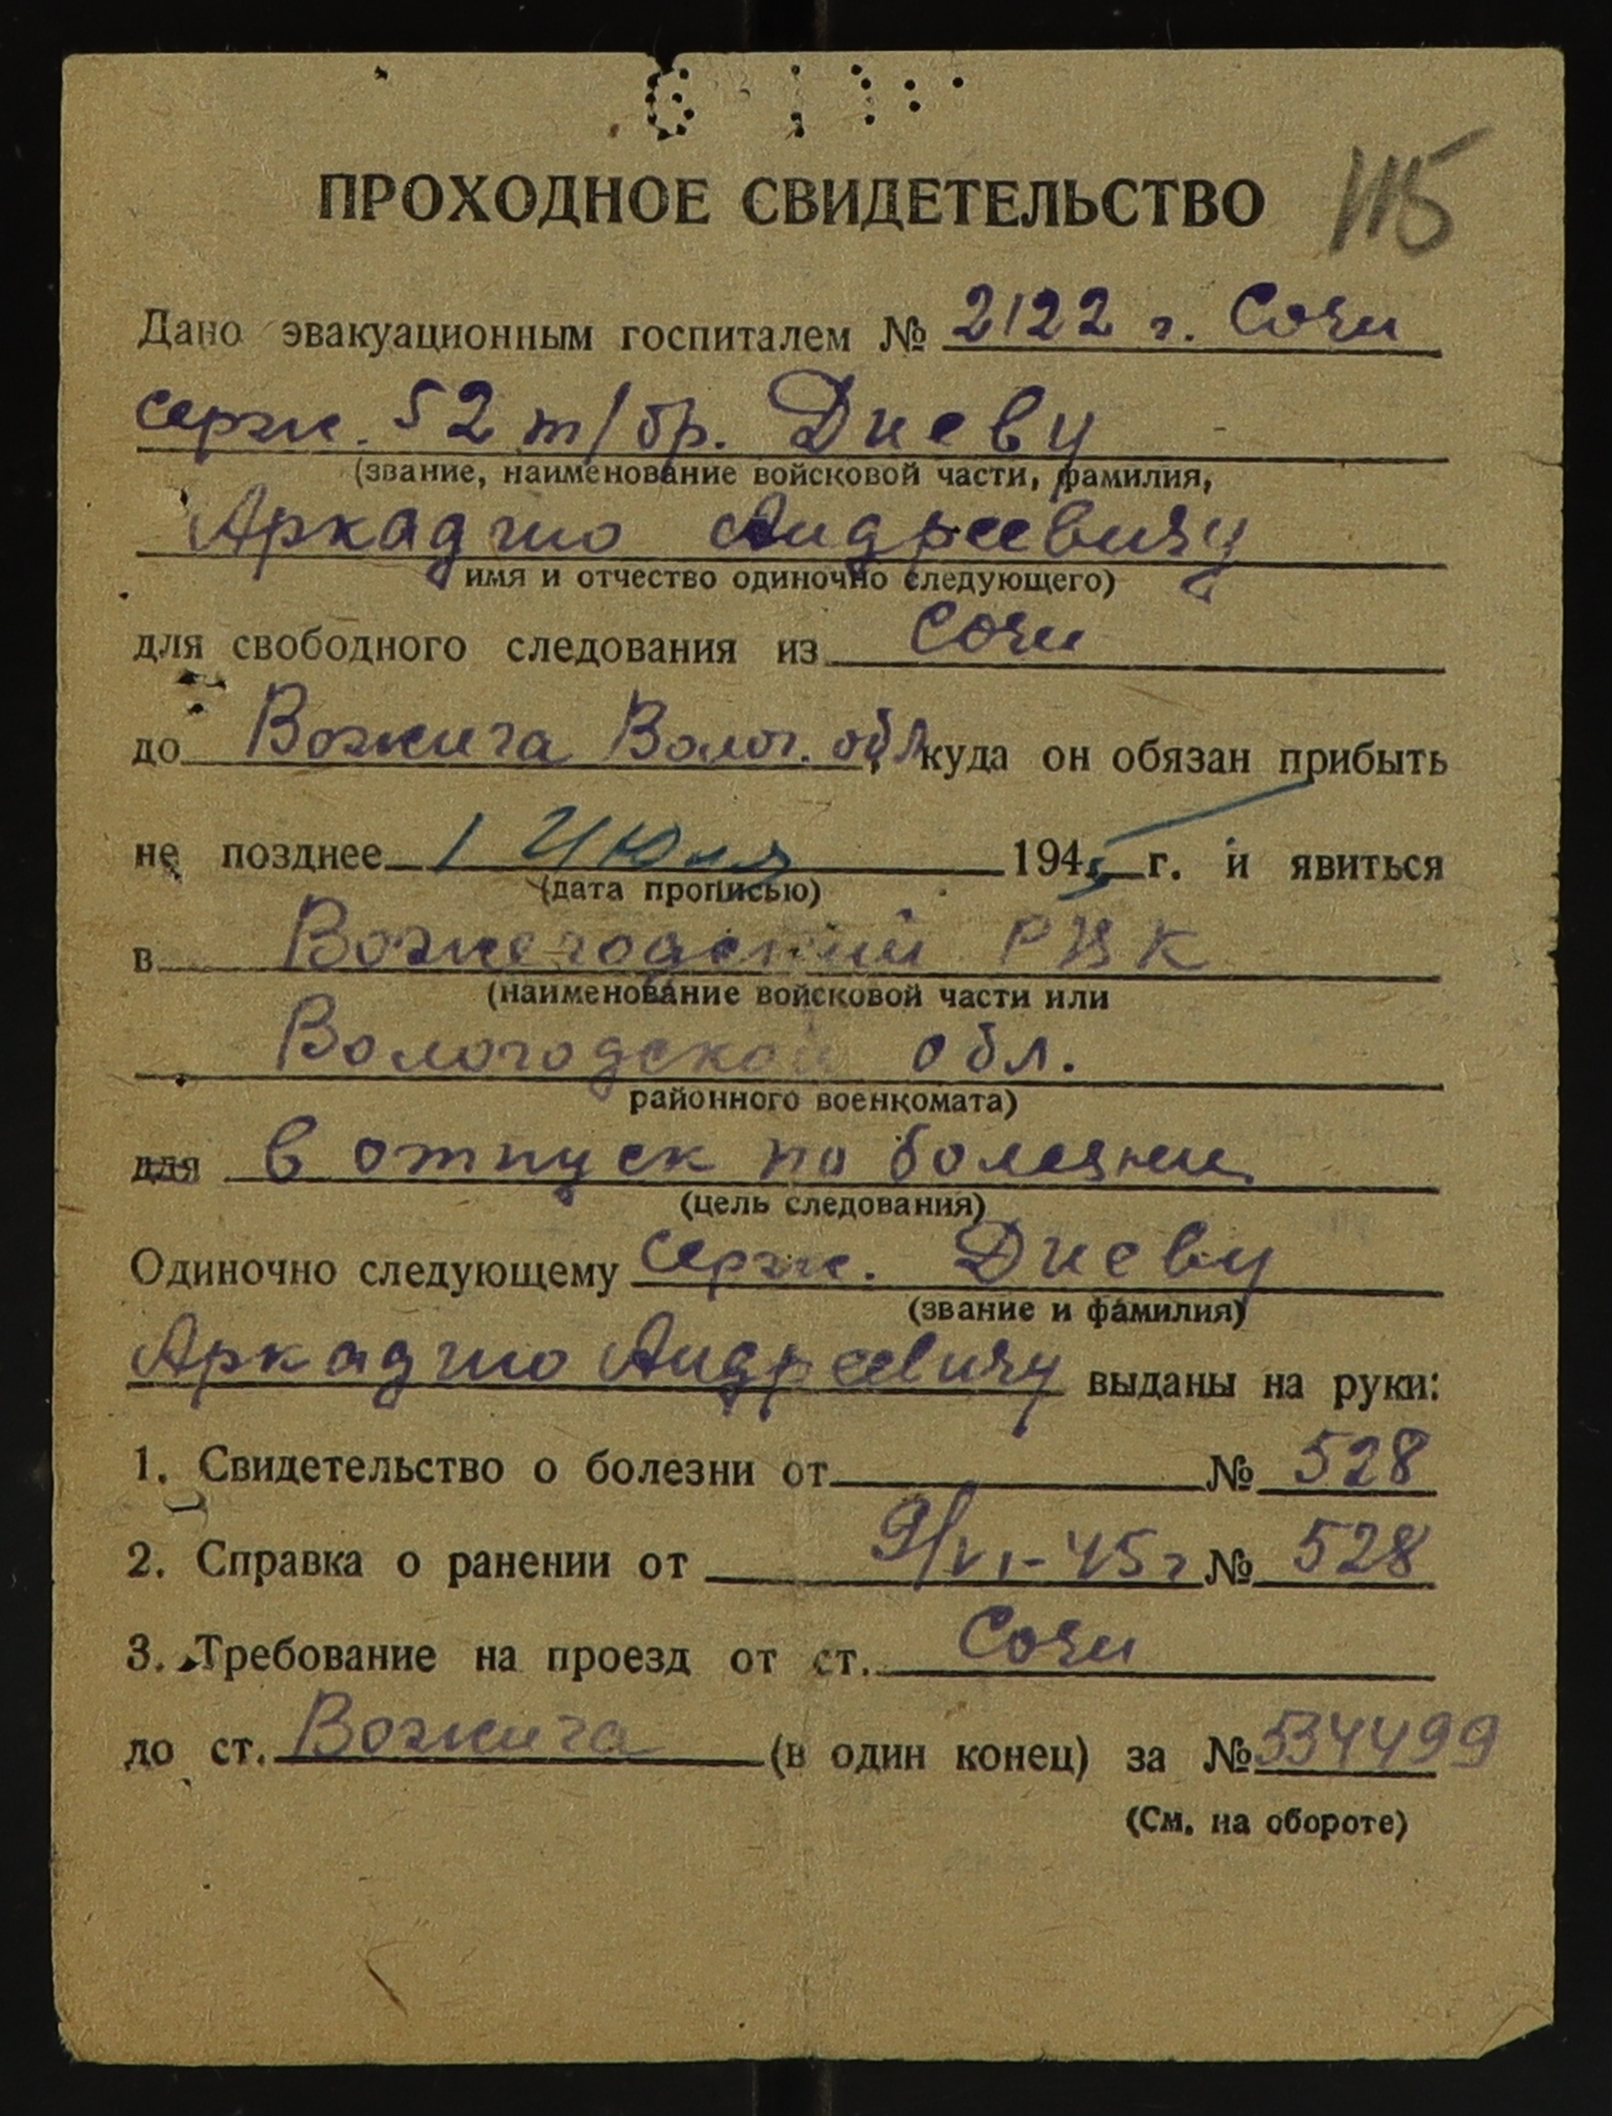 115
ПРОХОДНОЕ СВИДЕТЕЛЬСТВО
Дано эвакуационным госпиталем № 2122 г. Сочи
серж. 52 т/бр. Диеву
(звание, наименование войсковой части, фамилия,
Аркадию Андреевичу
имя и отчество одиночно следующего)
для свободного следования из Сочи
до Вожига Волог. обл, куда он обязан прибыть
не позднее 1 Июля 1945 г. и явиться
(дата прописью)
в Вожегодский РВК
(наименование войсковой части или
Вологодской обл.
районного военкомата)
для в отпуск по болезни
(цель следования)
Одиночно следующему серж. Диеву
(звание и фамилия)
Аркадию Андреевичу выданы на руки:
1. Свидетельство о болезни от № 528
2. Справка о ранении от 9/VI-45 г № 528
3. Требование на проезд от ст. Сочи
до ст. Вожига (в один конец) за № 534499
(См. на обороте)